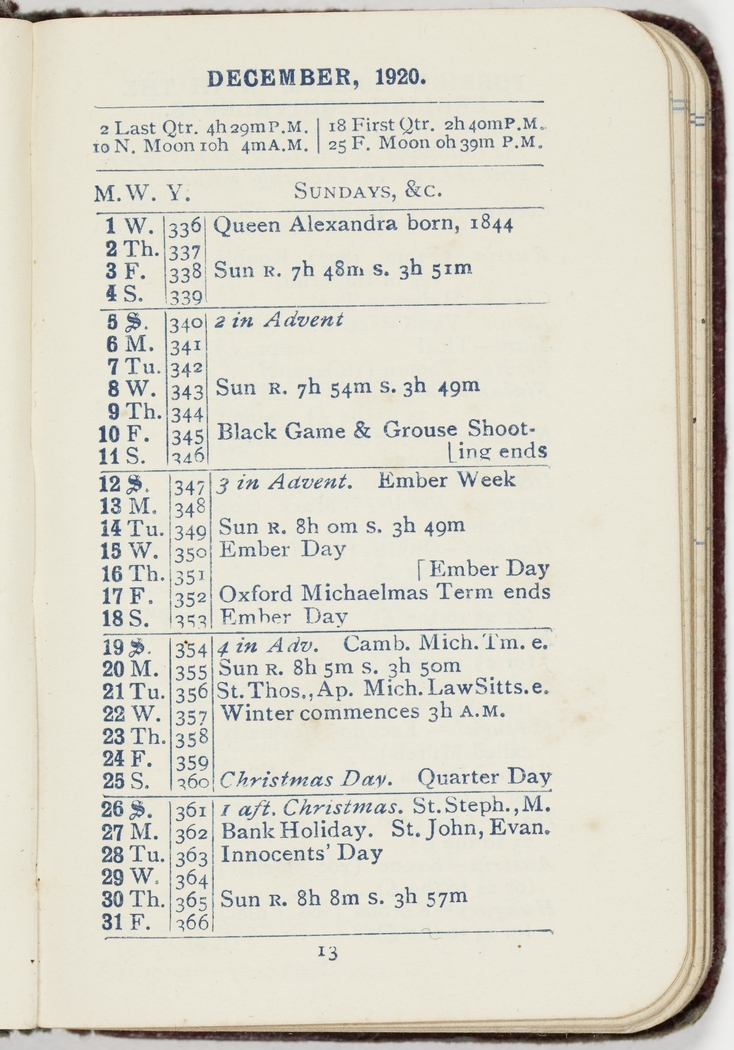 DECEMBER, 1920.
2 Last Qtr. 4h 29m P.M. | 18 First Qtr. 2h 40m P.M.
10 N. Moon 10h 4m A.M. | 25 F. Moon 0h 39m P.M.
M. W. Y. SUNDAYS, &c.
1 W. 336 Queen Alexandra born, 1844
2 Th. 337
3 F. 338 Sun R. 7h 48m S. 3h 51m
4 S. 339
5 S. 340 2 in Advent
6 M. 341
7 Tu. 342
8 W. 343 Sun R. 7h 54m S. 3h 49m
9 Th. 344
10 F. 345 Black Game & Grouse Shoot-
11 S. 346 [ing ends
12 S. 347 3 in Advent. Ember Week
13 M. 348
14 Tu. 349 Sun R. 8h 0m S. 3h 49m
15 W. 350 Ember Day
16 Th. 351 [Ember Day
17 F. 352 Oxford Michaelmas Term ends
18 S. 353 Ember Day
19 S. 354 4 in Adv. Camb. Mich. Tm. e.
20 M. 355 Sun R. 8h 5m S. 3h 50m
21 Tu. 356 St. Thos., Ap. Mich. Law Sitts. e.
22 W. 357 Winter commences 3h A.M.
23 Th. 358
24 F. 359
25 S. 360 Christmas Day. Quarter Day
26 S. 361 1 aft. Christmas. St. Steph., M.
27 M. 362 Bank Holiday. St. John, Evan.
28 Tu. 363 Innocents' Day
29 W. 364
30 Th. 365 Sun R. 8h 8m S. 3h 57m
31 F. 366
13